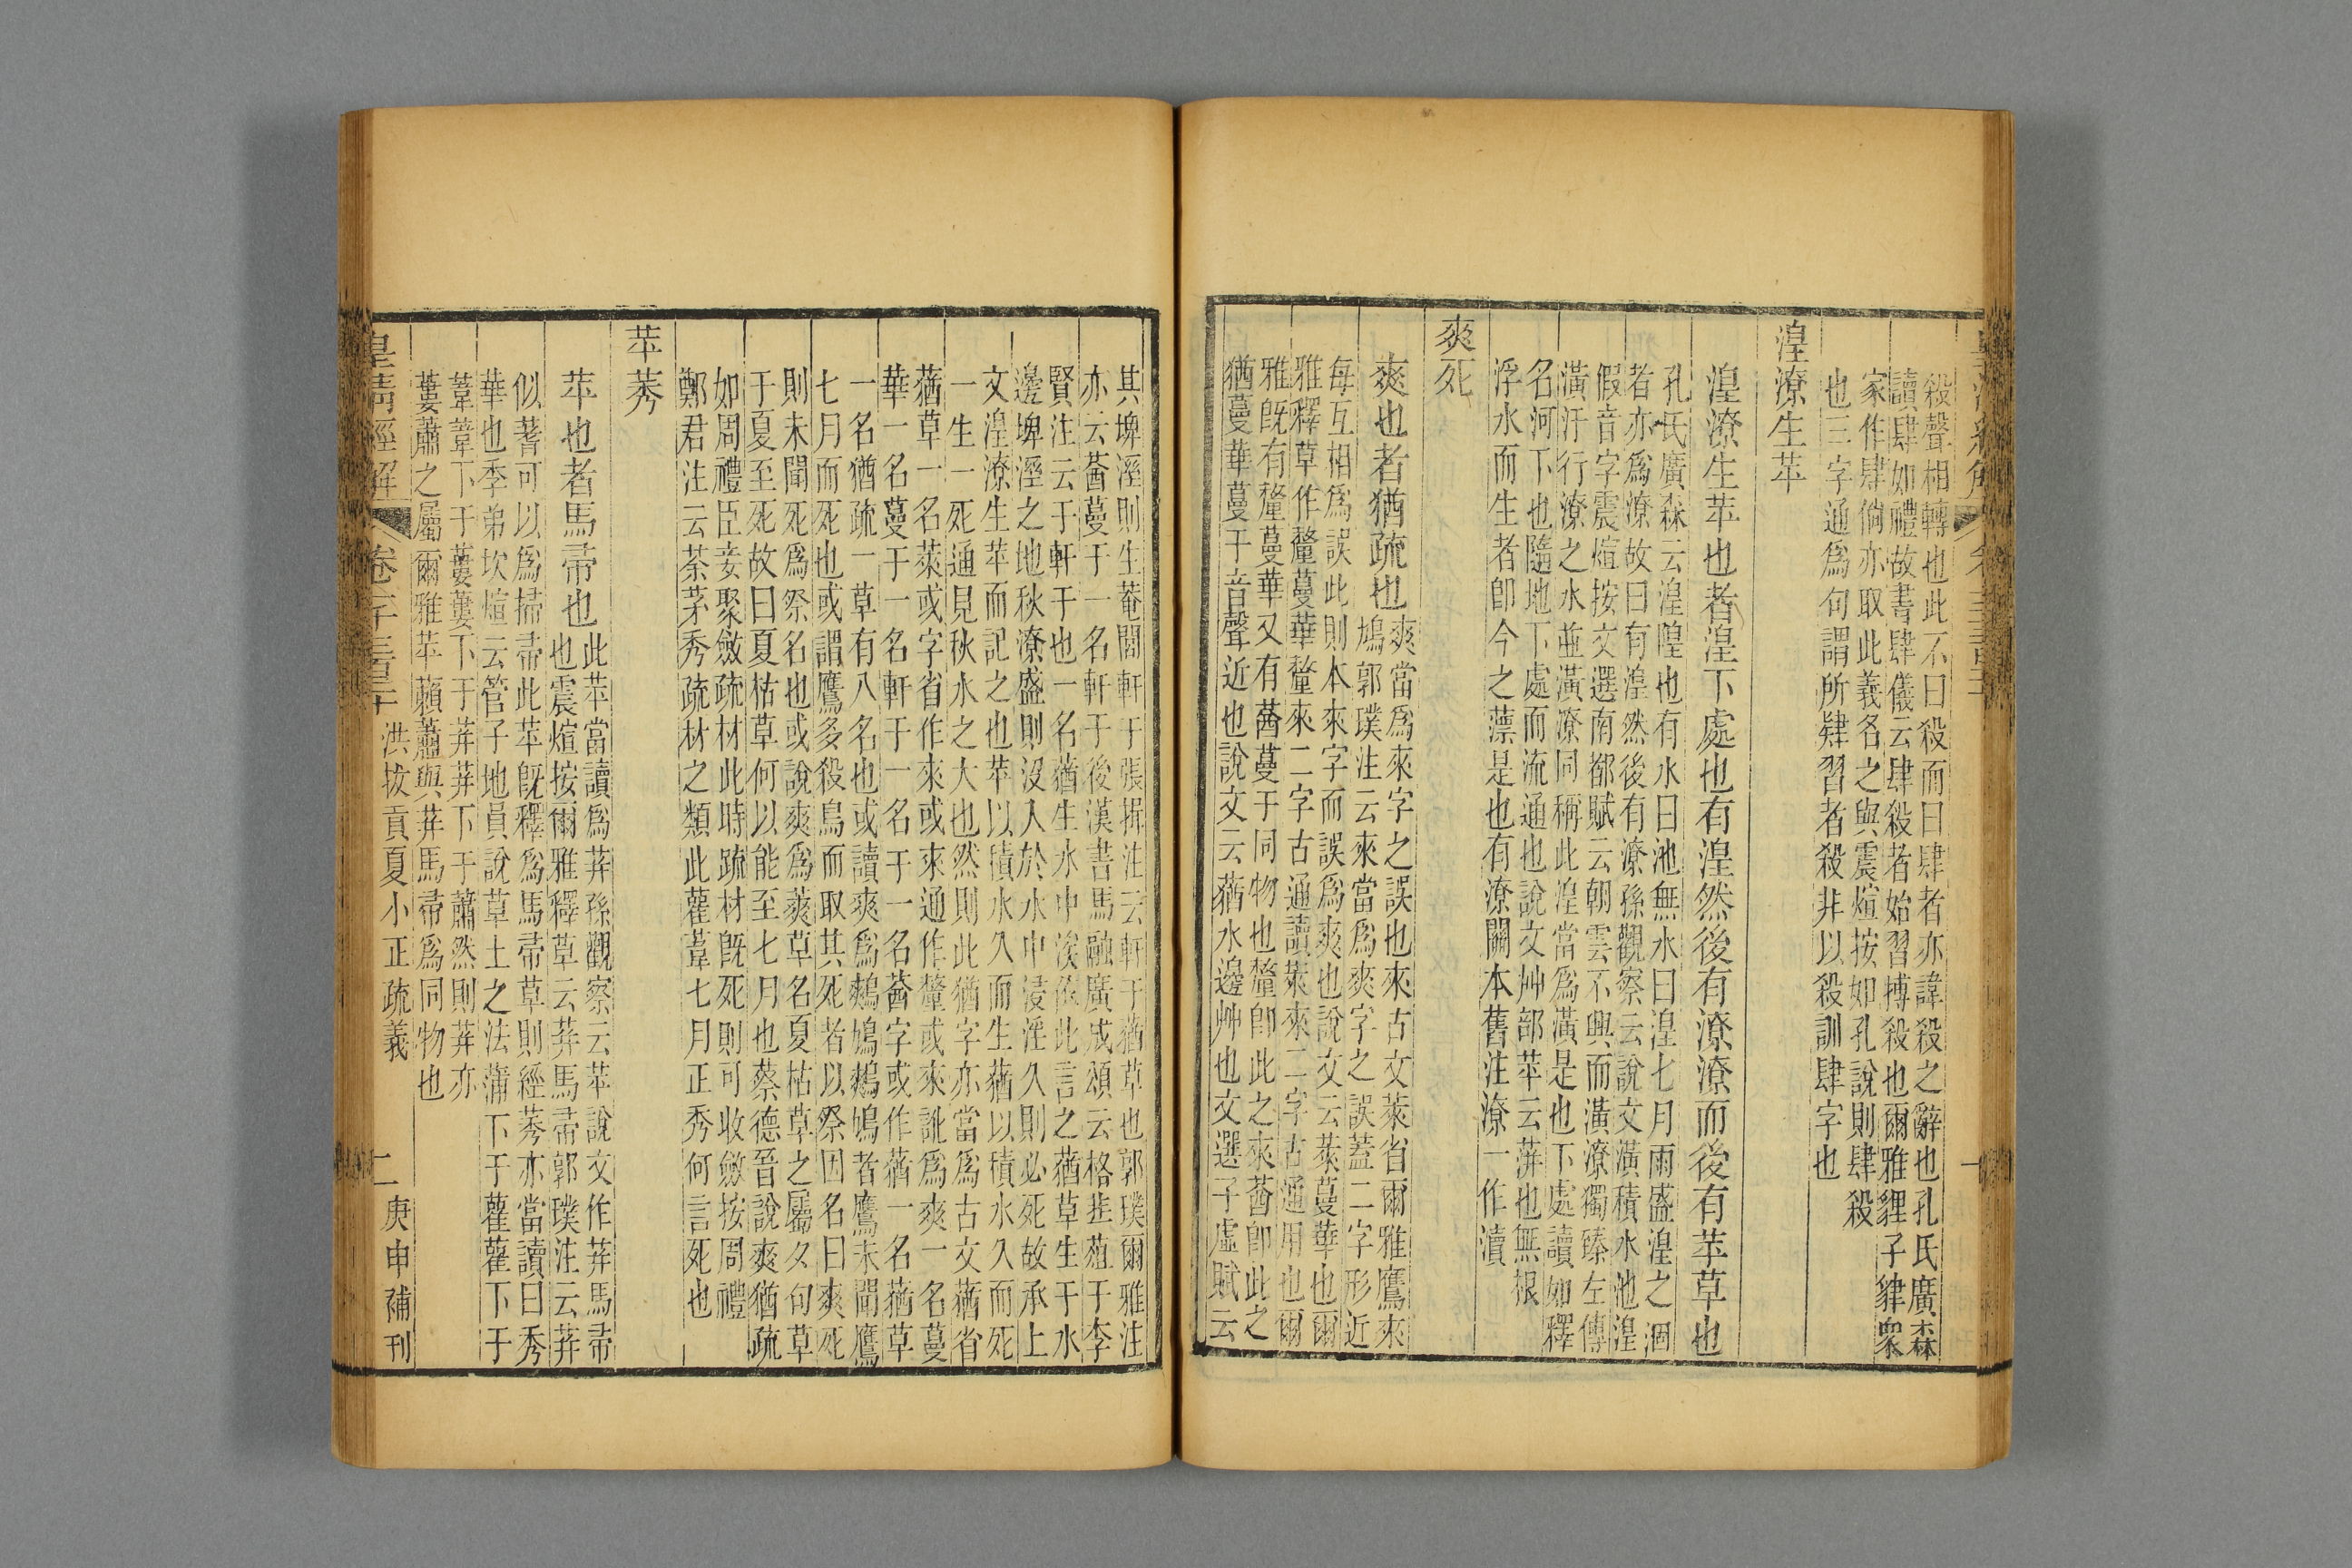 殺聲相轉也此不曰殺而曰肆者亦諱殺之辭也孔氏廣森
讀肆如禮故書肆儀云肆殺者始習搏殺也爾雅貍子貄衆
家作肆倘亦取此義名之與震煊按如孔說則肆殺
也三字通爲句謂所肄習者殺非以殺訓肆字也
湟潦生苹
湟潦生苹也者湟下處也有湟然後有潦潦而後有苹草也
孔氏廣森云湟隍也有水曰池無水曰湟七月雨盛湟之涸
者亦爲潦故曰有湟然後有潦孫觀察云說文潢積水池湟
假音字震煊按文選南都賦云朝雲不興而潢潦獨臻左傳
潢汙行潦之水並潢潦同稱此湟當爲潢是也下處讀如釋
名河下也隨地下處而流通也說文艸部苹云蓱也無根
浮水而生者卽今之薸是也有潦關本舊注潦一作瀆
爽死
爽也者猶疏也爽當爲來字之誤也來古文萊省爾雅鷹來
鳩郭璞注云來當爲爽字之誤蓋二字形近
每互相爲誤此則本來字而誤爲爽也說文云萊蔓華也爾
雅釋草作釐蔓華釐來二字古通讀萊來二字古通用也爾
雅旣有釐蔓華又有蕕蔓于同物也釐卽此之來蕕卽此之
猶蔓華蔓于音聲近也說文云蕕水邊艸也文選子虛賦云
其埤溼則生菴閭軒于張揖注云軒于蕕草也郭璞爾雅注
亦云蕕蔓于一名軒于後漢書馬融廣成頌云格韭葅于李
賢注云于軒于也一名蕕生水中矣依此言之蕕草生于水
邊埤溼之地秋潦盛則沒入於水中浸淫久則必死故承上
文湟潦生苹而記之也苹以積水久而生蕕以積水久而死
一生一死通見秋水之大也然則此猶字亦當爲古文蕕省
蕕草一名萊或字省作來或來通作釐或來訛爲爽一名蔓
華一名蔓于一名軒于一名于一名蕕字或作蕕一名蕕草
一名猶疏一草有八名也或讀爽爲鷞鳩鷞鳩者鷹未聞鷹
七月而死也或謂鷹多殺鳥而取其死者以祭因名曰爽死
則未聞死爲祭名也或說爽爲薾草名夏枯草之屬夂句草
于夏至死故曰夏枯草何以能至七月也蔡德晉說爽猶疏
如周禮臣妾聚斂疏材此時疏材旣死則可收斂按周禮
鄭君注云荼茅秀疏材之類此雚葦七月正秀何言死也
苹莠
苹也者馬帚也此苹當讀爲荓孫觀察云苹說文作荓馬帚
也震煊按爾雅釋草云荓馬帚郭璞注云荓
似蓍可以爲掃帚此苹旣釋爲馬帚草則經莠亦當讀曰秀
華也季弟坎煊云管子地員說草土之法蒲下于雚雚下于
葦葦下于蔞蔞下于荓荓下于蕭然則荓亦
蔞蕭之屬爾雅苹藾蕭與荓馬帚爲同物也
皇清經解 洪拔貢夏小正疏義 二 庚申補刊